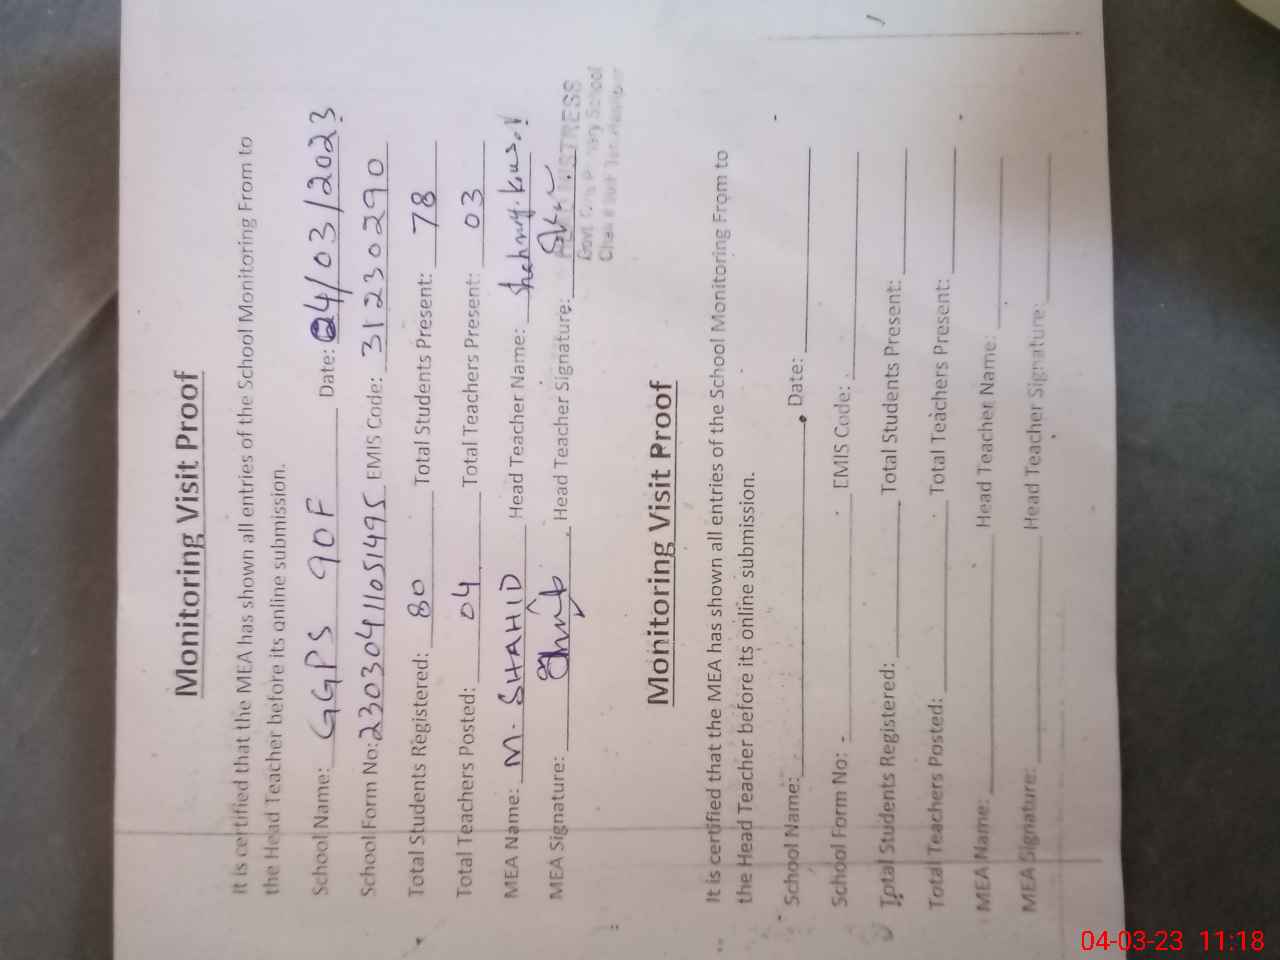 Monitoring Visit Proof
It is certified that the MEA has shown all entries of the School Monitoring From to
the Head Teacher before its online submission.
School Name: GGPS 90F Date: 04/03/2023
School Form No: 23030411051495 EMIS Code: 31230290
Total Students Registered: 80 Total Students Present: 78
Total Teachers Posted: 04 Total Teachers Present: 03
MEA Name: M. SHAHID Head Teacher Name:
MEA Signature: Head Teacher Signature:
Monitoring Visit Proof
It is certified that the MEA has shown all entries of the School Monitoring From to
the Head Teacher before its online submission.
School Name: Date:
School Form No: EMIS Code:
Total Students Registered: Total Students Present:
Total Teachers Posted: Total Teachers Present:
MEA Name: Head Teacher Name:
MEA Signature: Head Teacher Signature:
04-03-23 11:18